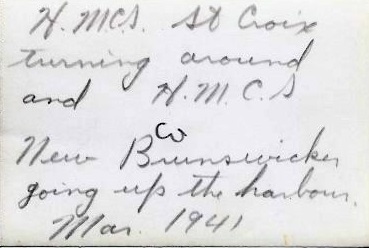 H.MCS. St Croix
turning around
and H.M.C.S
Co
New Brunswicker
going up the harbour.
Mar. 1941